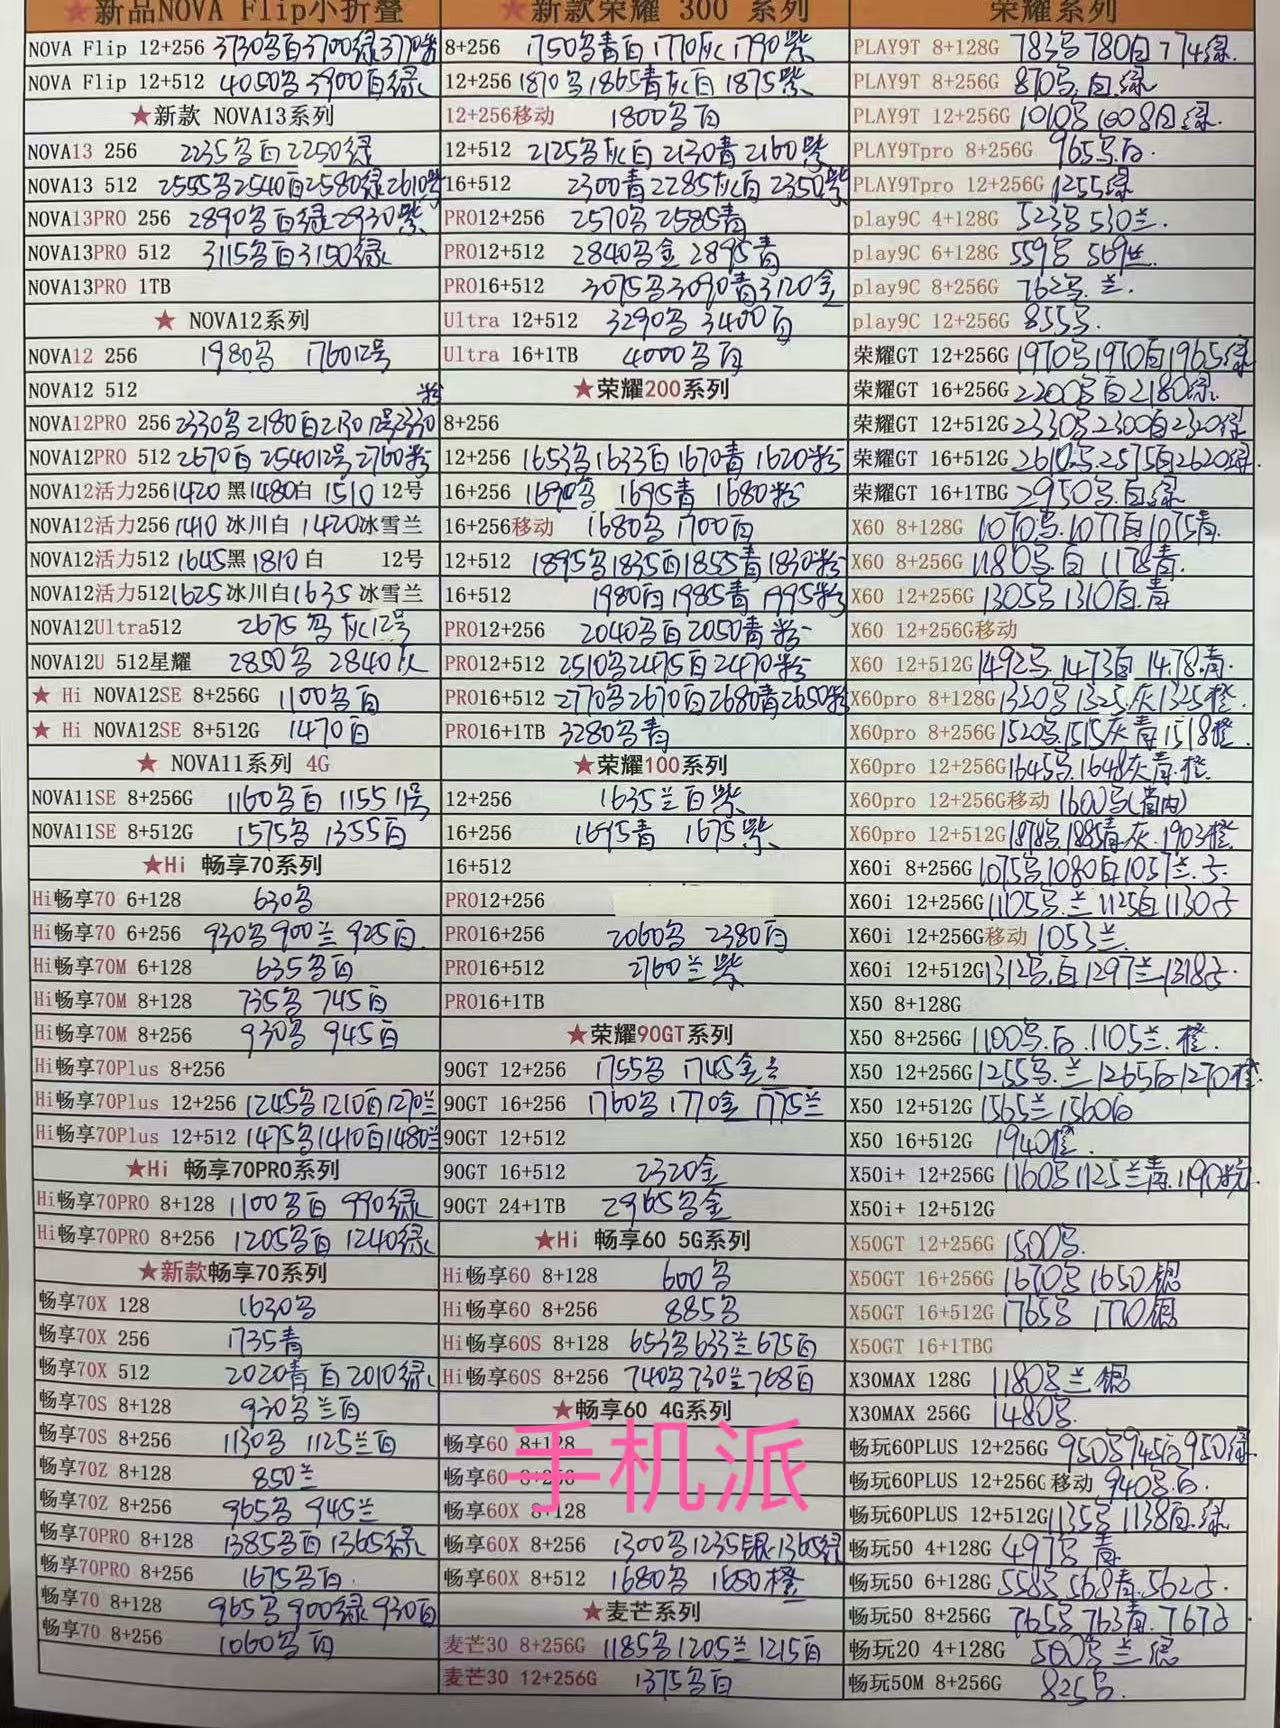 ★新品NOVA Flip小折叠
NOVA Flip 12+256 3730名白3700绿3770粉
NOVA Flip 12+512 4050名3900白绿
★新款 NOVA13系列
NOVA13 256 2235名白2250绿
NOVA13 512 2555名2540白2580绿2610紫
NOVA13PRO 256 2890名白绿2930紫
NOVA13PRO 512 3115名白3150绿
NOVA13PRO 1TB
★ NOVA12系列
NOVA12 256 1980名 1760 12号
NOVA12 512
NOVA12PRO 256 2330名2180白2130 12号2330粉
NOVA12PRO 512 2670白2540 12号2760粉
NOVA12活力256 1420 黑1480白 1510 12号
NOVA12活力256 1410 冰川白 1420冰雪兰
NOVA12活力512 1645黑 1810 白 12号
NOVA12活力512 1625 冰川白1635 冰雪兰
NOVA12Ultra512 2675名灰12号
NOVA12U 512星耀 2850名 2840灰
★ Hi NOVA12SE 8+256G 1100名白
★ Hi NOVA12SE 8+512G 1470白
★ NOVA11系列 4G
NOVA11SE 8+256G 1160名白 1155 11号
NOVA11SE 8+512G 1575名 1355白
★Hi 畅享70系列
Hi畅享70 6+128 630名
Hi畅享70 6+256 930名900兰 925白.
Hi畅享70M 6+128 635名白
Hi畅享70M 8+128 735名 745白
Hi畅享70M 8+256 930名 945白
Hi畅享70Plus 8+256
Hi畅享70Plus 12+256 1245名1210白1270兰
Hi畅享70Plus 12+512 1475名1410白1480兰
★Hi 畅享70PRO系列
Hi畅享70PRO 8+128 1100名白 990绿
Hi畅享70PRO 8+256 1205名白 1240绿
★新款畅享70系列
畅享70X 128 1630名
畅享70X 256 1735青
畅享70X 512 2020青白2010绿
畅享70S 8+128 930名兰白
畅享70S 8+256 1130名 1125兰白
畅享70Z 8+128 850兰
畅享70Z 8+256 965名 945兰
畅享70PRO 8+128 1385名白1365绿
畅享70PRO 8+256 1675名白.
畅享70 8+128 965名900绿930白
畅享70 8+256 1060名白
★新款荣耀 300 系列
8+256 1750名青白1770灰1790紫
12+256 1870名1865青灰白1875紫
12+256移动 1800名白
12+512 2125名灰白2130青2160紫
16+512 2300青2285灰白2350紫
PRO12+256 2570名 2585青
PRO12+512 2840名金 2895青
PRO16+512 3075名3090青3120金
Ultra 12+512 3290名 3400白
Ultra 16+1TB 4000名白
★荣耀200系列
8+256
12+256 1653名1633白1670青1620粉
16+256 1690名 1695青 1680粉
16+256移动 1680名 1700白
12+512 1895名1835白1855青1830粉
16+512 1980白1985青1995粉
PRO12+256 2040名白2050青粉
PRO12+512 2510名2475白2470粉
PRO16+512 2770名2670白2680青2650粉
PRO16+1TB 3280名青
★荣耀100系列
12+256 1635兰白紫
16+256 1695青 1675紫
16+512
PRO12+256
PRO16+256 2060名 2380白
PRO16+512 2760兰紫
PRO16+1TB
★荣耀90GT系列
90GT 12+256 1755名 1745金兰
90GT 16+256 1760名 1770金 1775兰
90GT 12+512
90GT 16+512 2320金
90GT 24+1TB 2965名金
★Hi 畅享60 5G系列
Hi畅享60 8+128 600名
Hi畅享60 8+256 885名
Hi畅享60S 8+128 653名633兰675白
Hi畅享60S 8+256 740名730兰768白
★畅享60 4G系列
畅享60 8+128
畅享60 8+256
手机派
畅享60X 8+128
畅享60X 8+256 1300名1235银1365绿
畅享60X 8+512 1680名 1680橙
★麦芒系列
麦芒30 8+256G 1185名1205兰1215白
麦芒30 12+256G 1375名白
荣耀系列
PLAY9T 8+128G 783名780白774绿.
PLAY9T 8+256G 870名.白.绿
PLAY9T 12+256G 1010名1008白绿.
PLAY9Tpro 8+256G 965名白.
PLAY9Tpro 12+256G 1255绿
play9C 4+128G 523名530兰.
play9C 6+128G 559名 569兰.
play9C 8+256G 762名.兰.
play9C 12+256G 855名.
荣耀GT 12+256G 1970名1970白1965绿
荣耀GT 16+256G 2200名白2180绿.
荣耀GT 12+512G 2330名2300白2320绿
荣耀GT 16+512G 2610名2575白2620绿
荣耀GT 16+1TBG 2950名.白绿
X60 8+128G 1070名.1077白1075青.
X60 8+256G 1180名.白 1178青.
X60 12+256G 1305名 1310白.青
X60 12+256G移动
X60 12+512G 1492名.1473白 1478青.
X60pro 8+128G 1320名1325灰1325橙.
X60pro 8+256G 1520名.1515灰青1518橙.
X60pro 12+256G 1645名.1648灰青.橙.
X60pro 12+256G移动 1600名(省内)
X60pro 12+512G 1878名.1885青灰.1903橙
X60i 8+256G 1075名.1080白1057兰.
X60i 12+256G 1105名.兰 1125白1130
X60i 12+256G移动 1053兰.
X60i 12+512G 1312名.白1297兰1318
X50 8+128G
X50 8+256G 1100名.白.1105兰.橙.
X50 12+256G 1255名.兰1265白1270橙.
X50 12+512G 1565兰1560白
X50 16+512G 1940橙.
X50i+ 12+256G 1160名1125兰青.1190粉.
X50i+ 12+512G
X50GT 12+256G 1500名.
X50GT 16+256G 1670名1650银
X50GT 16+512G 1765名 1770银
X50GT 16+1TBG
X30MAX 128G 1180名兰银
X30MAX 256G 1480名.
畅玩60PLUS 12+256G 950名945白950绿
畅玩60PLUS 12+256G移动 940名白.
畅玩60PLUS 12+512G 1135名1138白.绿.
畅玩50 4+128G 497名青
畅玩50 6+128G 558名.568青.562
畅玩50 8+256G 765名763青.767
畅玩20 4+128G 500名兰绿
畅玩50M 8+256G 825名.